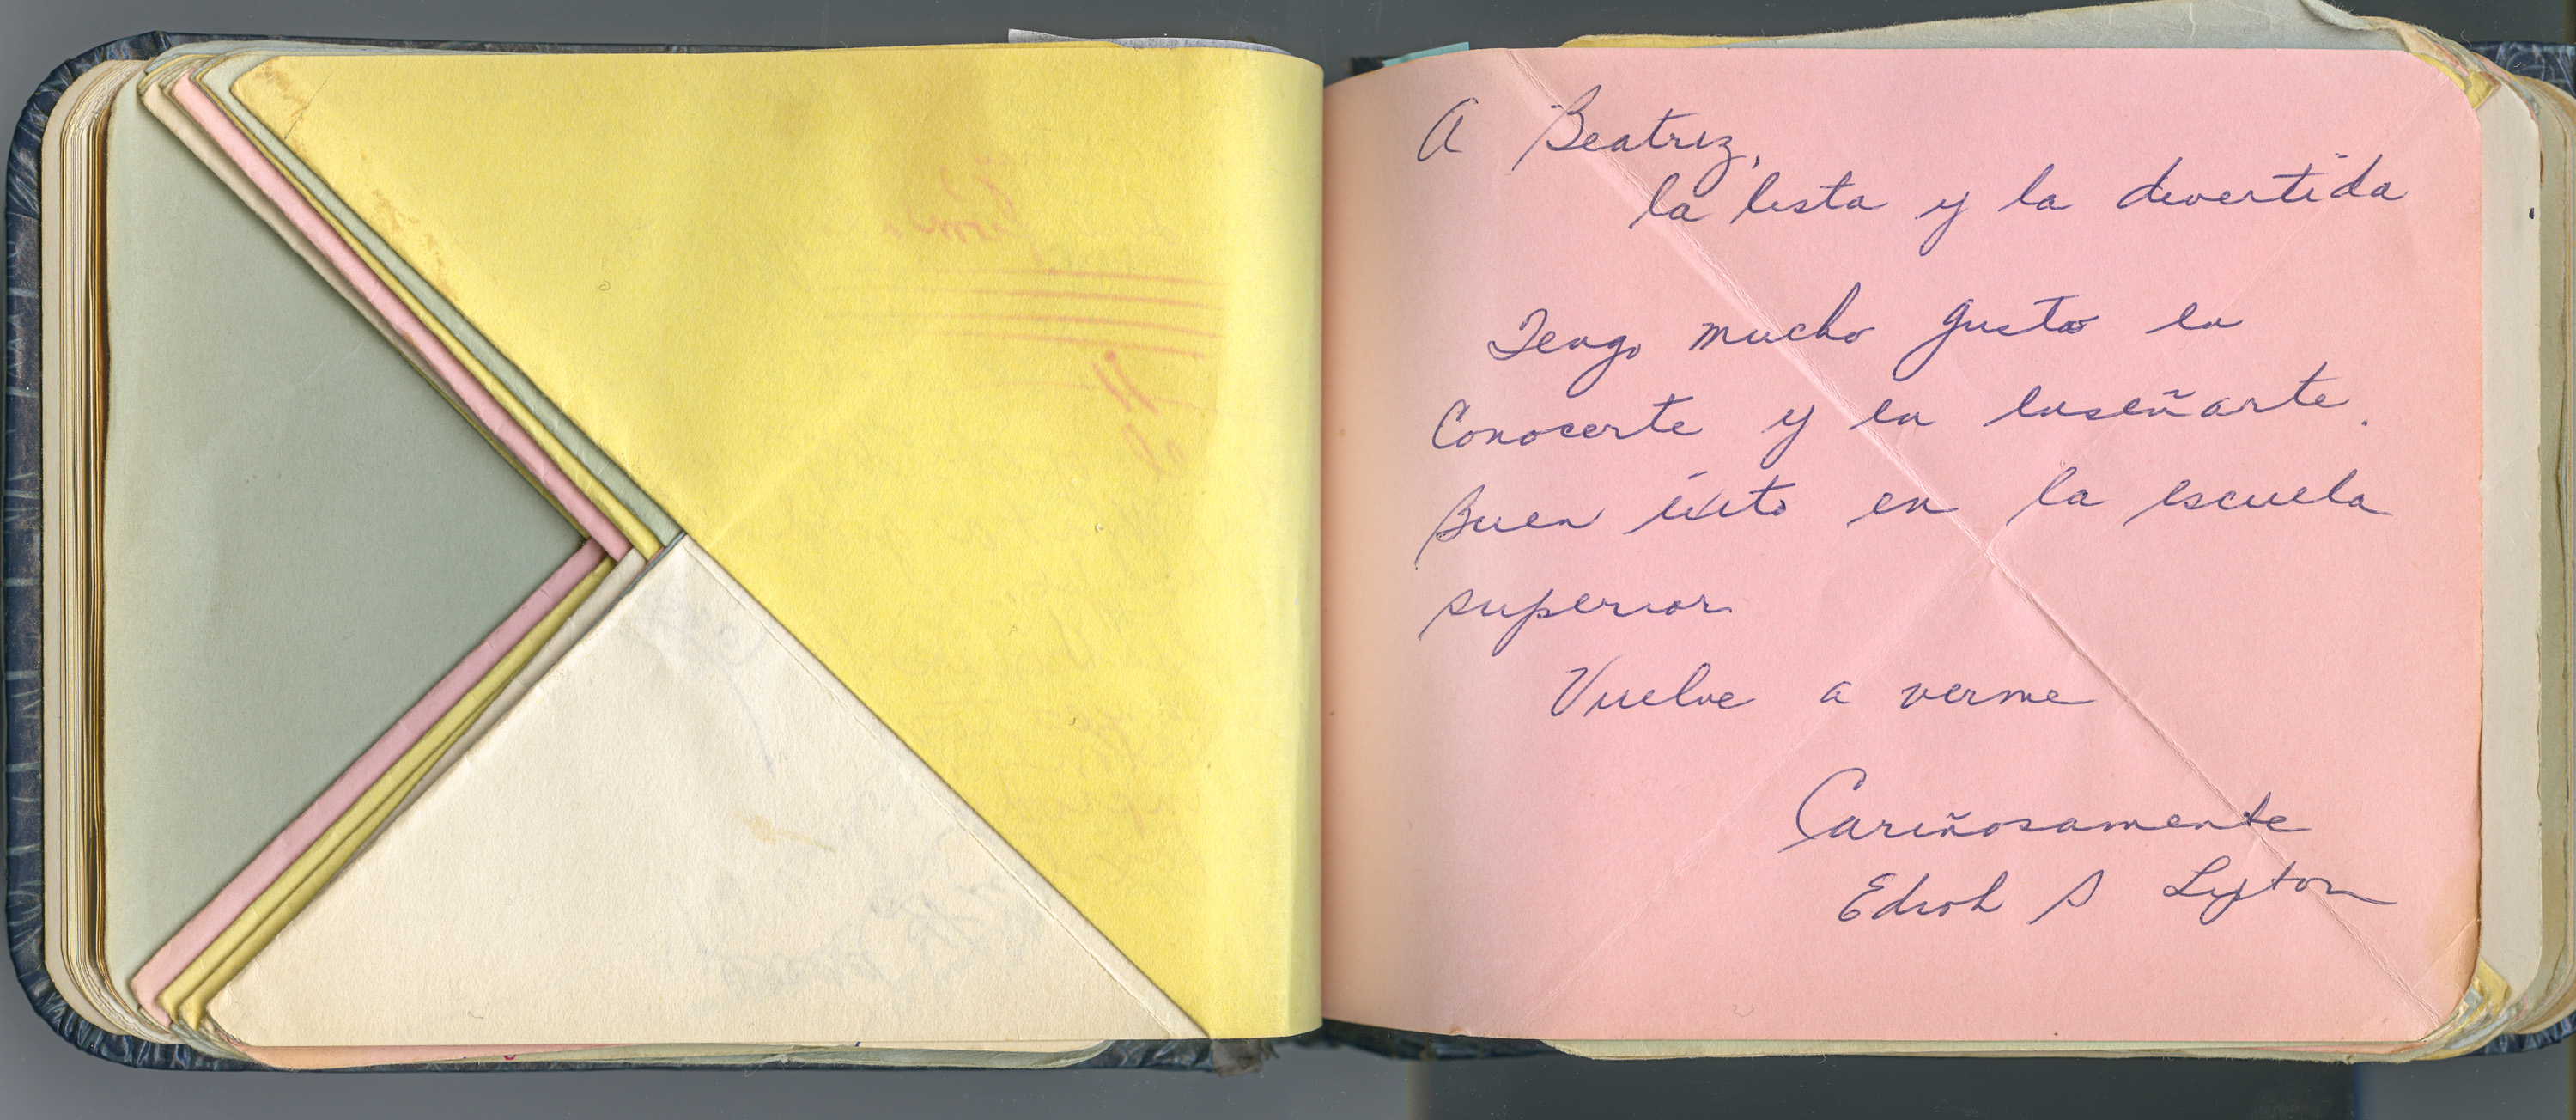 A Beatriz,
la lista y la divertida
Tengo mucho gusto en
Conocerte y en enseñarte.
Buen éxito en la escuela
superior
Vuelve a verme
Cariñosamente
S Lyton